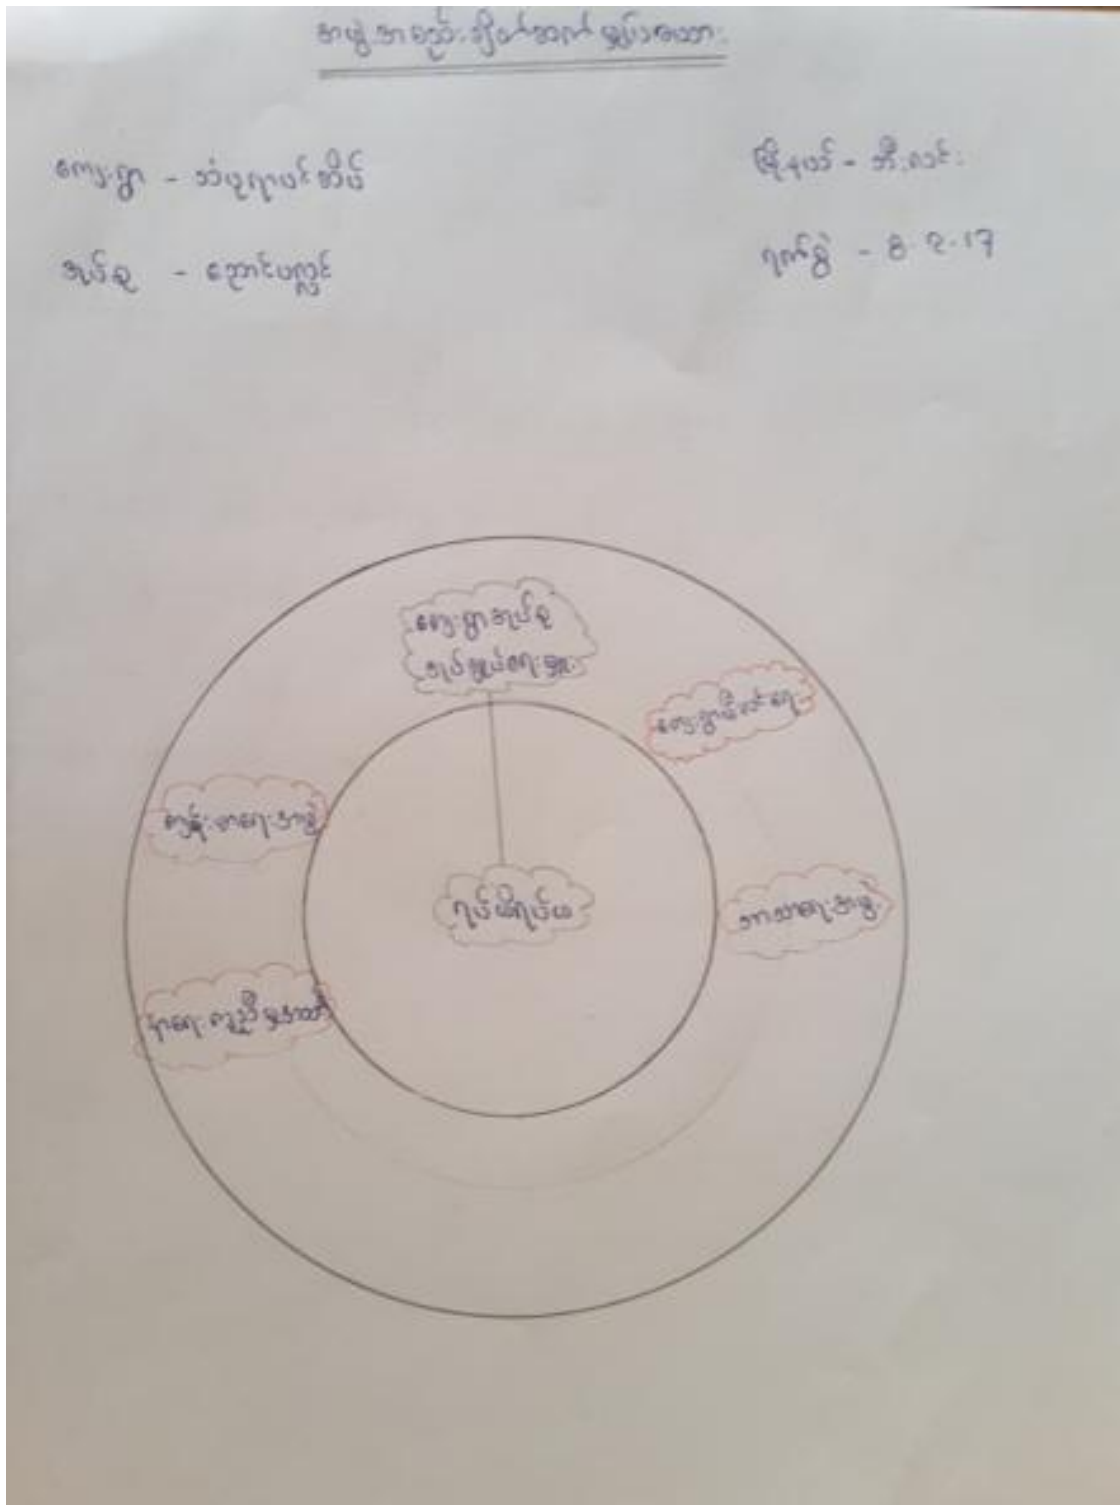 အဖွဲ့အစည်းချိတ်ဆက်မှုပြယား
ကျေးရွာ - သံပုရာပင်အိပ်
မြို့နယ် - ဘီးလင်း
အုပ်စု - ညောင်ပလ္လင်
ရက်စွဲ - 8-2-17
ကျေးရွာအုပ်စု
အုပ်ချုပ်ရေးမှူး
ကျေးရွာမီးလင်းရေး
ကျန်းမာရေးအဖွဲ့
ရပ်မိရပ်ဖ
ဘာသာရေးအဖွဲ့
နာရေးကူညီမှုအသင်း